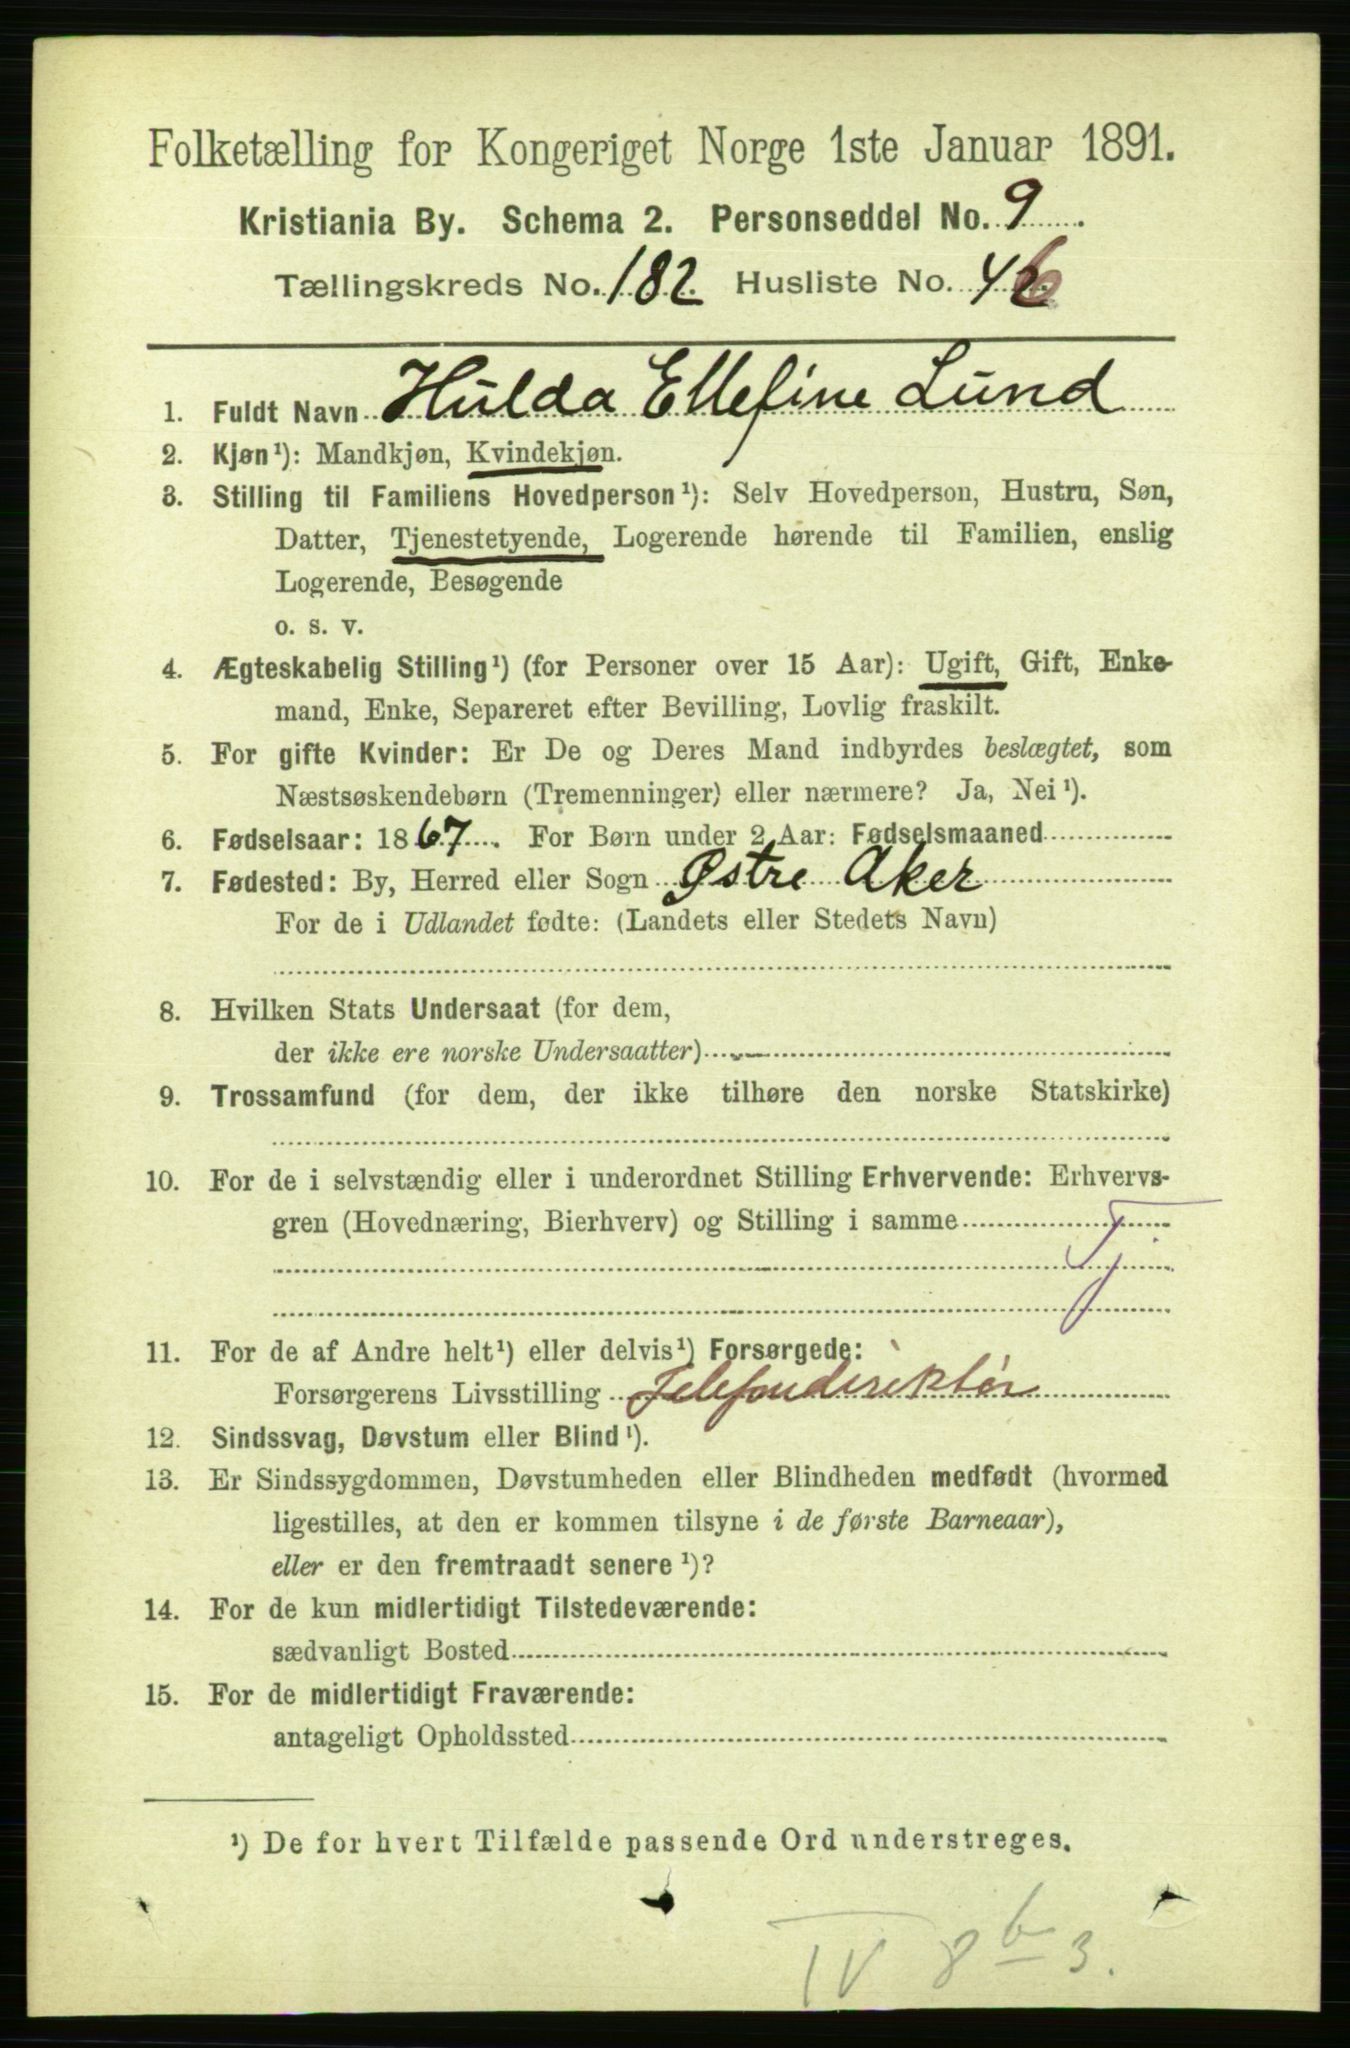 Folketælling for Kongeriget Norge 1ste Januar 1891.
Kristiania By. Schema 2. Personseddel No. 9.
Tællingskreds No. 182 Husliste No. 46
1. Fuldt Navn Hulda Ellefine Lund
2. Kjøn¹): Mandkjøn, Kvindekjøn.
3. Stilling til Familiens Hovedperson¹): Selv Hovedperson, Hustru, Søn,
Datter, Tjenestetyende, Logerende hørende til Familien, enslig
Logerende, Besøgende
o. s. v.
4. Ægteskabelig Stilling¹) (for Personer over 15 Aar): Ugift, Gift, Enke-
mand, Enke, Separeret efter Bevilling, Lovlig fraskilt.
5. For gifte Kvinder: Er De og Deres Mand indbyrdes beslægtet, som
Næstsøskendebørn (Tremenninger) eller nærmere? Ja, Nei¹).
6. Fødselsaar: 1867. For Børn under 2 Aar: Fødselsmaaned
7. Fødested: By, Herred eller Sogn Østre Aker
For de i Udlandet fødte: (Landets eller Stedets Navn)
8. Hvilken Stats Undersaat (for dem,
der ikke ere norske Undersaatter)
9. Trossamfund (for dem, der ikke tilhøre den norske Statskirke)
10. For de i selvstændig eller i underordnet Stilling Erhvervende: Erhvervs-
gren (Hovednæring, Bierhverv) og Stilling i samme
Tj.
11. For de af Andre helt¹) eller delvis¹) Forsørgede:
Forsørgerens Livsstilling Telefondirektør
12. Sindssvag, Døvstum eller Blind¹).
13. Er Sindssygdommen, Døvstumheden eller Blindheden medfødt (hvormed
ligestilles, at den er kommen tilsyne i de første Barneaar),
eller er den fremtraadt senere¹)?
14. For de kun midlertidigt Tilstedeværende:
sædvanligt Bosted
15. For de midlertidigt Fraværende:
antageligt Opholdssted
¹) De for hvert Tilfælde passende Ord understreges.
IV 8 b 3.